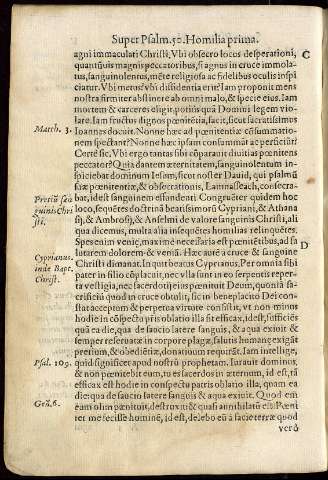 Super Psalm. 50. Homilia prima.
agni immaculati Christi, Vbi obsecro locus desperationi, C
quantũuis magnis peccatoribus, si agnus in cruce immola-
tus, sanguinolentus, mẽte religiosa ac fidelibus oculis inspi
ciatur. Vbi metus? vbi diffidentia erit? Iam proponit mens
nostra firmiter abstinere ab omni malo, & specie eius. Iam
mortem & carceres eligit potius quā Domini legem vio-
lare. Iam fructus dignos pœnitētia, facit, sicut sacratissimus
Matth. 3. Ioannes docuit. Nonne hæc ad pœnitentiæ cõsummatio-
nem spectant? Nonne hæc ipsam consummāt ac perficiūt?
Certè sic. Vbi ergo tantas sibi cõparauit diuitias pœnitens
peccator? Quia dantem æternitatem, sanguinolentum in-
spiciebat dominum Iesum, sicut noster Dauid, qui psalmũ
fixæ pœnitentiæ, & obsecrationis, Lamnasseach, consecra-
Pretiũ sā bat, idest sanguinem effundenti Congruẽter quidem hoc
guinis Chri loco, sequētes doctrinā beatissimorũ Cypriani, & Athana
sti. sij, & Ambrosij, & Anselmi de valore sanguinis Christi, ali
qua dicemus, multa alia insequẽtes homilias relinquẽtes.
Spes enim venię, maximè necessaria est pœnitẽtibus, ad sa D
lutarem dolorem & venia. Hæc autē a cruce & sanguine
Cyprianus, Christi dimanat. In quit beatus Cyprianus. Per omnia sibi
in de Bapt. pater in filio cõplacuit, nec vlla sunt in eo serpentis reper-
Christ. ta vestigia, nec sacerdotij eius pœnituit Deum, quoniā sa-
crificiũ quod in cruce obtulit, sic in beneplacito Dei con-
stat acceptum & perpetua virtute consistit, vt non minus
hodie in cõspectu pris oblatio illa sit efficax, idest, sufficiēs
quā ea die, qua de saucio latere sanguis, & aqua exiuit &
semper reseruatæ in corpore plagæ, salutis humanę exigāt
pretium, & obediētiæ, donatiuum requirāt. Iam intellige,
Psal. 109. quid significet apud nostrũ prophetam. Iurauit dominus,
& non pœnitebit eum, tu es sacerdos in æternum, id est, tã
efficax est hodie in conspectu patris oblatio illa, quam ea
die: qua de saucio latere sanguis & aqua exiuit. Quod em
Gen. 6. eam olim pœnituit, destruxit & quasi annihilatũ est. Pœni
ter me fecisse hominẽ, id est, delebo eũ à facie terræ quod
verò